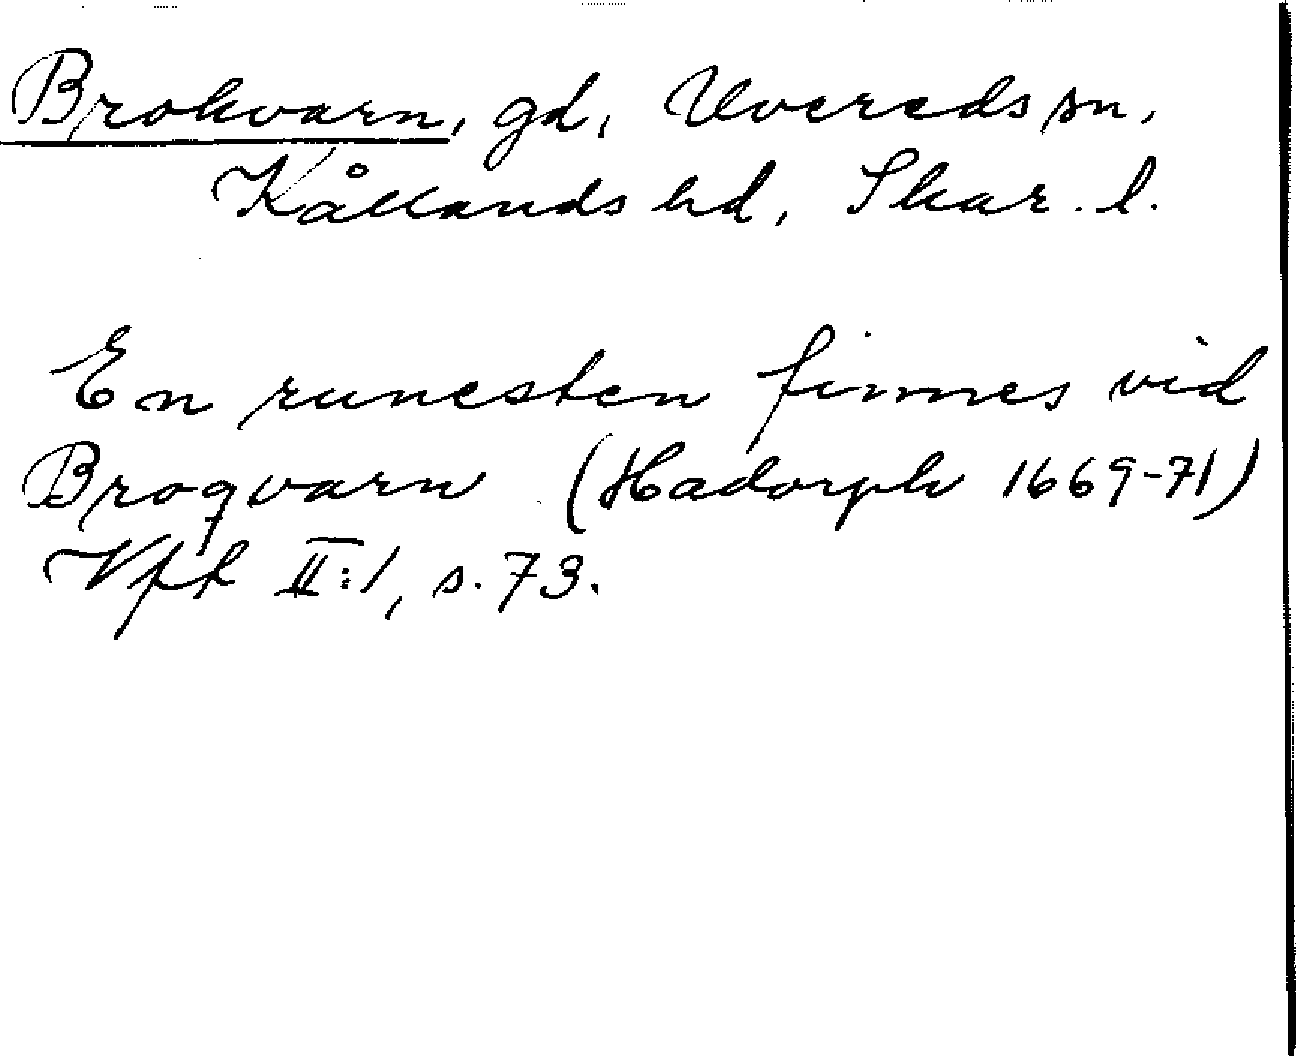 Brokvarn, gd, Uvereds sn,
Kållands hd, Skar. l.
En runesten finnes vid
Broqvarn (Hadorph 1669-71)
Vfk II:1, s. 73.